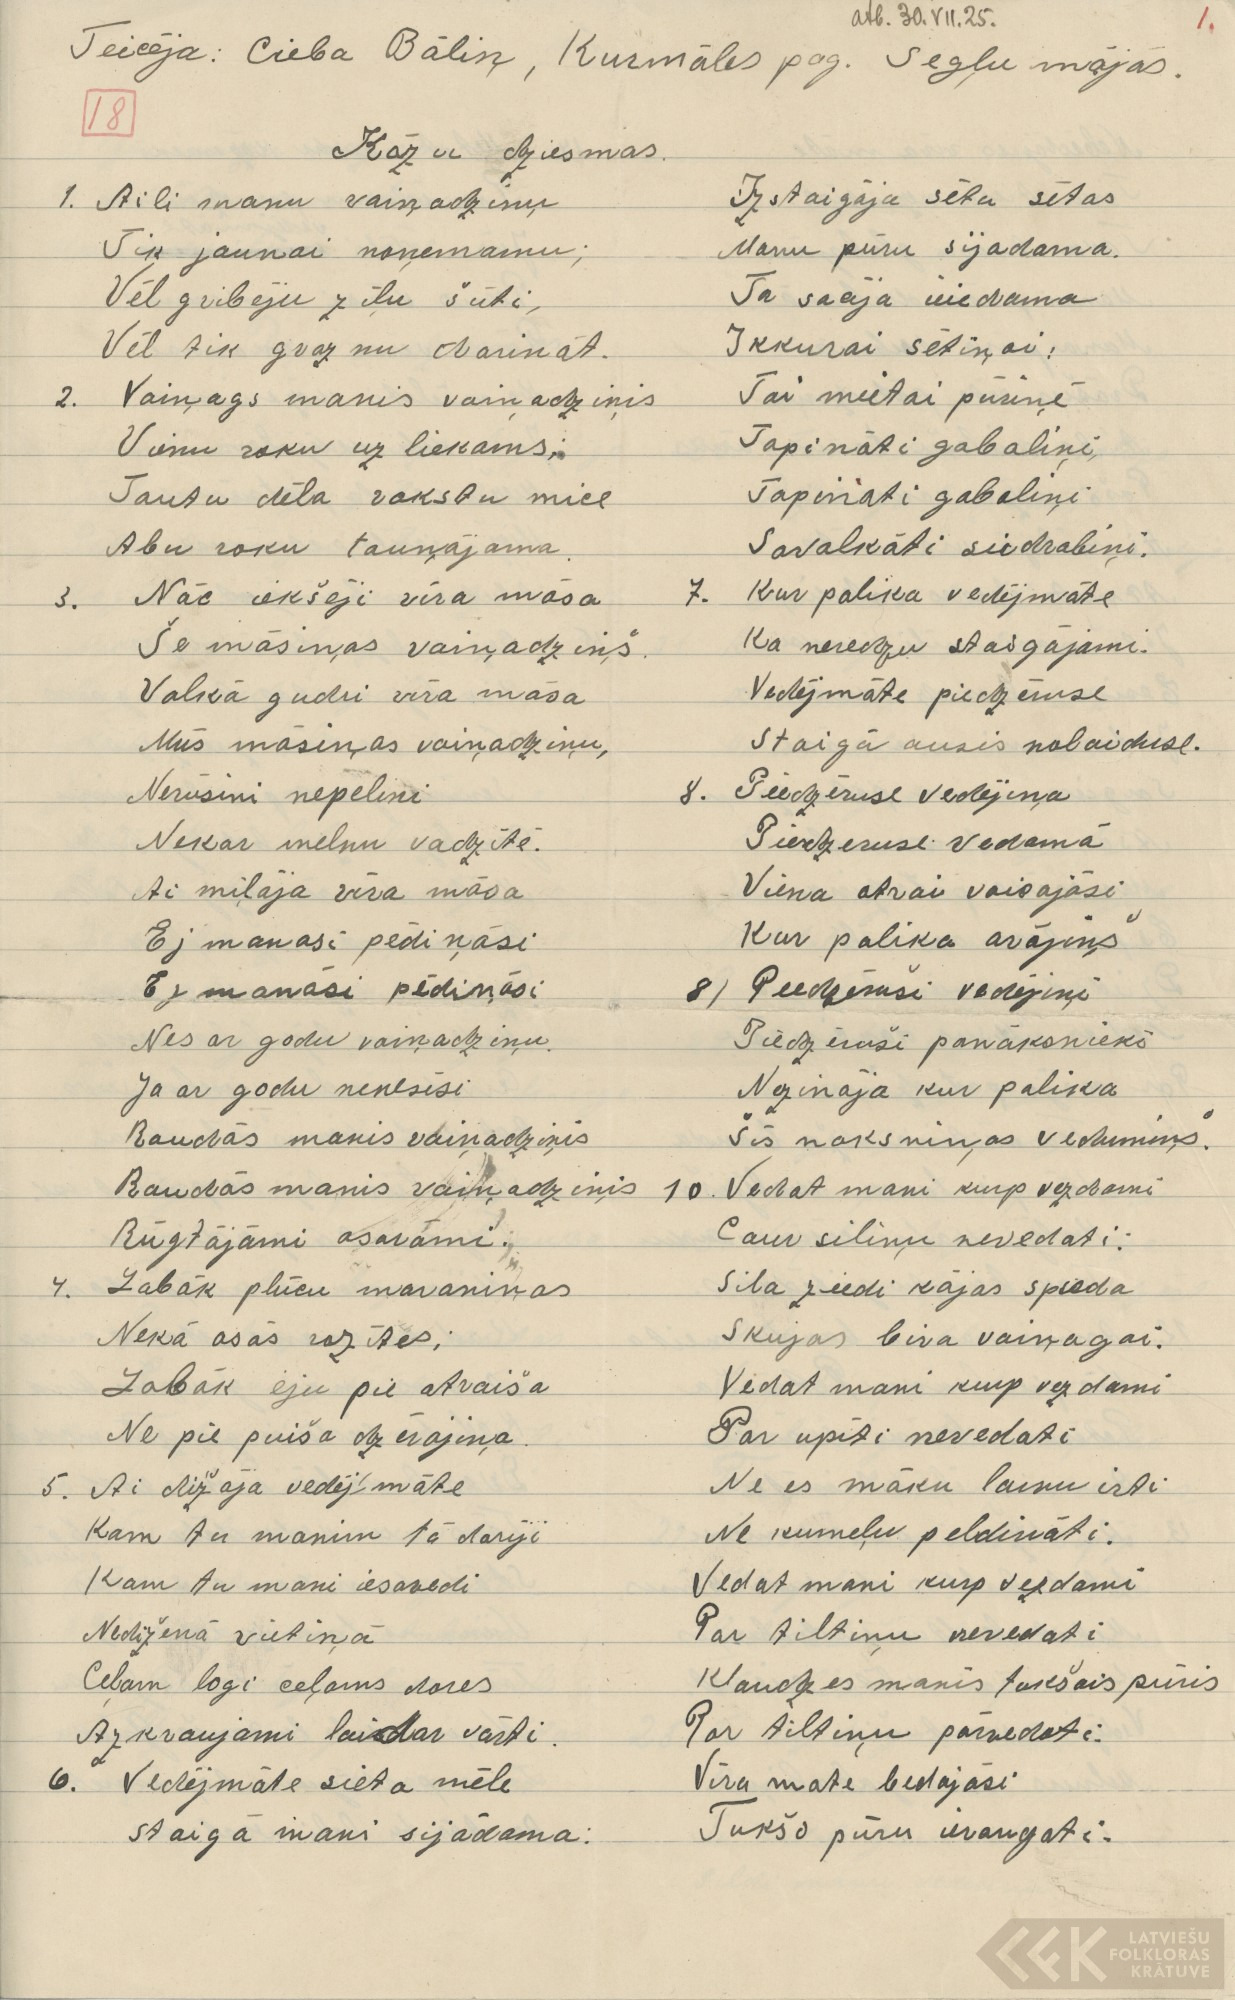 atb. 30.VII.25.
1.
Teicēja: Cieba Bāliņ, Kurmāles pag. Segļu mājās.
18
Kāzu dziesmas.
1. Aili manu vaiņadziņu
Tik jaunai noņemamu;
Vēl gribēju zīļu šūti,
Vēl tik graznu darināt.
2. Vaiņags manis vaiņadziņis
Vienu roku uz liekams;
Tautu dēla rakstu mice
Abu roku tauņājama.
3. Nāc iekšēji vīra māsa
Še māsiņas vaiņadziņš.
Valkā gudri vīra māsa
Mūs māsiņas vaiņadziņu,
Nerūsini nepelini
Nekar melnu vadzītē.
Ai miļāja vīra māsa
Ej manasi pēdiņāsi
Ej manāsi pēdiņāsi
Nes ar godu vaiņadziņu.
Ja ar godu nenesīsi
Raudās manis vaiņadziņis
Raudās manis vaiņadziņis
Rūgtājāmi asarāmi.
4. Labāk plūcu mavaniņas
Nekā asās rozītes;
Labāk eju pie atraiša
Ne pie puiša dzērājiņa.
5. Ai dižāja vedējmāte
Kam tu manim tā dariji
Kam tu mani iesavedi
Nediženā vietiņā
Ceļam logi ceļams dores
Azkraujami laidar vārti.
6. Vedējmāte sieta mēle
Staigā mani sijādama:
Izstaigāja sētu sētas
Manu pūru sijadama.
Ta sacīja ieiedama
Ikkurai sētiņai:
Tai meitai pūriņē
Tapināti gabaliņi,
Tapināti gabaliņi
Savalkāti siedrabiņi.
7. Kur palika vedējmāte
Ka neredzu staigājami.
Vedējmāte piedzēruse
Staigā ausis nolaiduse.
8. Piedzēruse vedējiņa
Piedzeruse vedamā
Viena otrai vaicajāsi
Kur palika arājiņš
8) Piedzēruši vedējiņi
Piedzēruši panāksnieki
Nezināja kur palika
Šīs naksniņas vedumiņš.
10. Vedat mani kurp vezdami
Caur siliņu nevedati:
Sila ziedi kājas spieda
Skujas bira vaiņagai.
Vedat mani kurp vezdami
Par upīti nevedati
Ne es māku laivu irti
Ne kumeļu peldināti.
Vedat mani kurp vezdami
Par tiltiņu nevedati
Klaudzes manis tukšais pūris
Par tiltiņu pārvedati.
Vīra mate bedājāsi
Tukšo pūru ieraugati.
LATVIEŠU
FOLKLORAS
KRĀTUVE